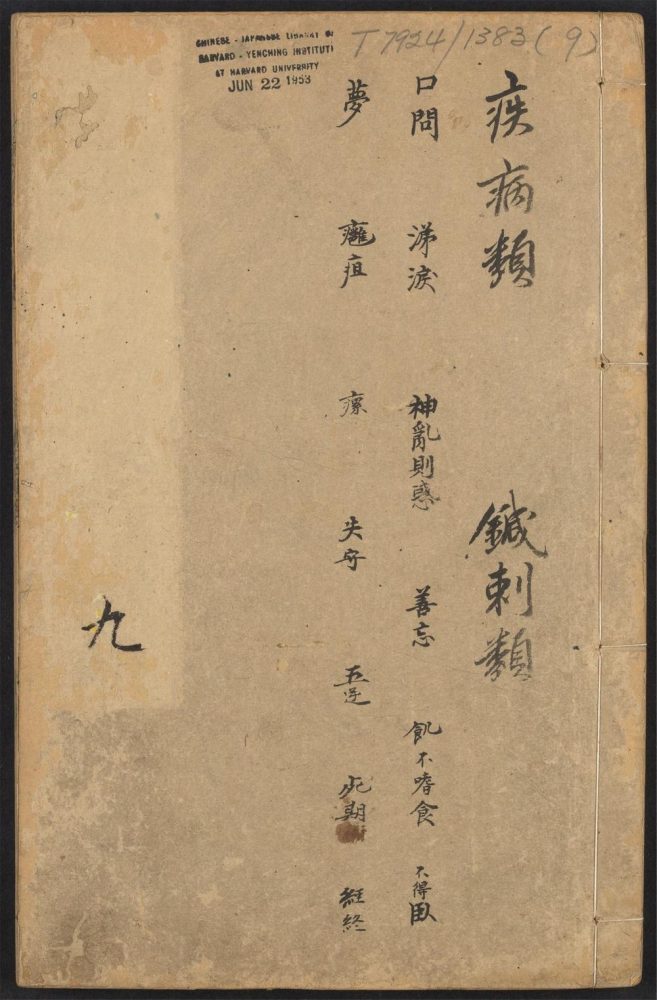 疾病類 鍼刺類
口問 涕淚 神亂則惑 善忘 飢不嗜食 不得臥
夢 癰疽 瘰 失守 五逆 死期 經終
九
CHINESE - JAPANESE LIBRARY OF
HARVARD - YENCHING INSTITUTE
AT HARVARD UNIVERSITY
JUN 22 1953
T 7924/1383(9)